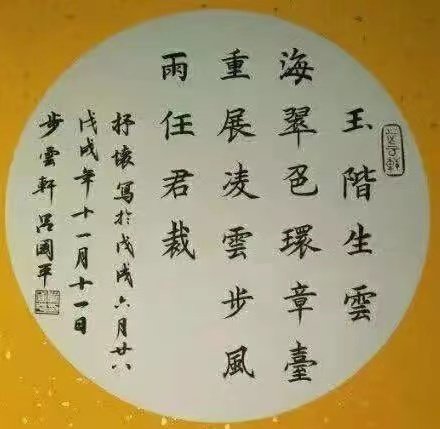 玉階生雲
海翠色環章臺
重展凌雲步風
雨任君裁
抒懷寫於戊戌六月廿八
戊戌年十一月十一日
步雲軒 呂國平